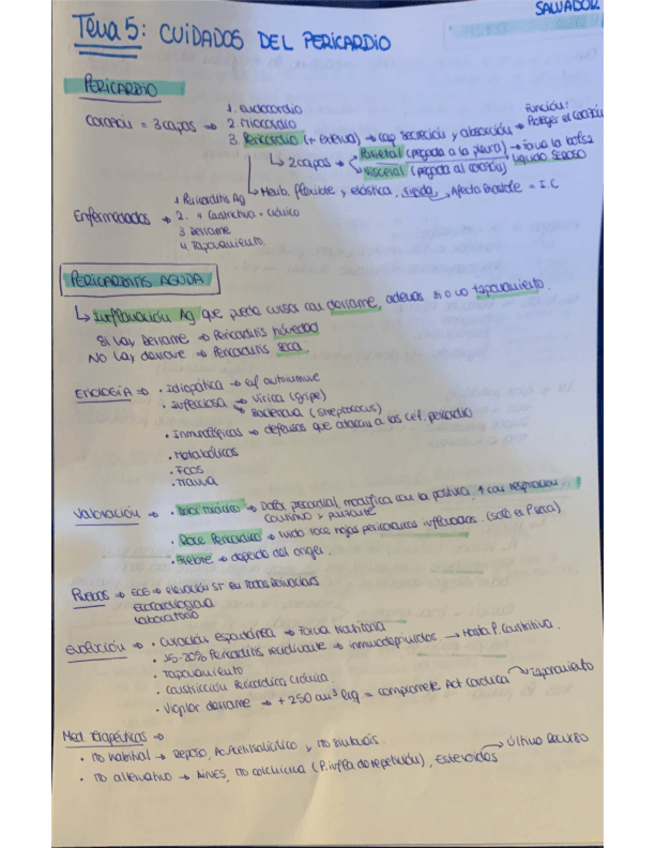 SALVADOR.
Tema 5: CUIDADOS DEL PERICARDIO
PERICARDIO
Corazón = 3 capas → 1. Endocardio
2. Miocardio
3. Pericardio (+ externa) → cap secreción y absorción → Función: Proteger el corazón
↳ 2 capas → Parietal (pegada a la pleura) → Forma la bolsa
Visceral (pegada al corazón) líquido seroso
↳ Memb. flexible y elástica. → Afecta = I.C
Enfermedades → 1. Pericarditis Ag
2. " Constrictiva = crónica
3. Derrame
4. Taponamiento.
PERICARDITIS AGUDA
↳ Inflamación Ag que puede cursar con derrame, además si o no taponamiento.
Si hay derrame → Pericarditis húmeda
No hay derrame → Pericarditis seca
ETIOLOGÍA → • Idiopática → enf autoinmune
• Infecciosa → Vírica (gripe)
→ Bacteriana (streptococus)
• Inmunológicas → defensas que atacan a las cel. pericardio
• Metabólicos
• FCOS
• Trauma
Valoración → • Dolor torácico → Dolor precordial, modifica con la postura, ↑ con respiración
continuo y punzante
• Roce Pericárdico → ruido roce hojas pericárdicas inflamadas. (solo en P seca)
• Fiebre → depende del origen.
Pruebas → ECG → elevación ST en todas derivaciones
Ecocardiograma
Laboratorio
Evolución → • Curación espontánea → forma habitual
• 15-20% Pericarditis recidivante → inmunodeprimidos → Hasta P. Constrictiva.
• Taponamiento
• Constricción Pericárdica Crónica.
• Vigilar derrame → + 250 cm³ líq = compromete Act Cardiaca → Taponamiento
Med. Terapéuticas →
• Tto habitual → Reposo, Ac. Acetilsalicílico y
• Tto alternativo → AINES, Tto colchicina (P. infla de repetición), Esteroides → Último recurso